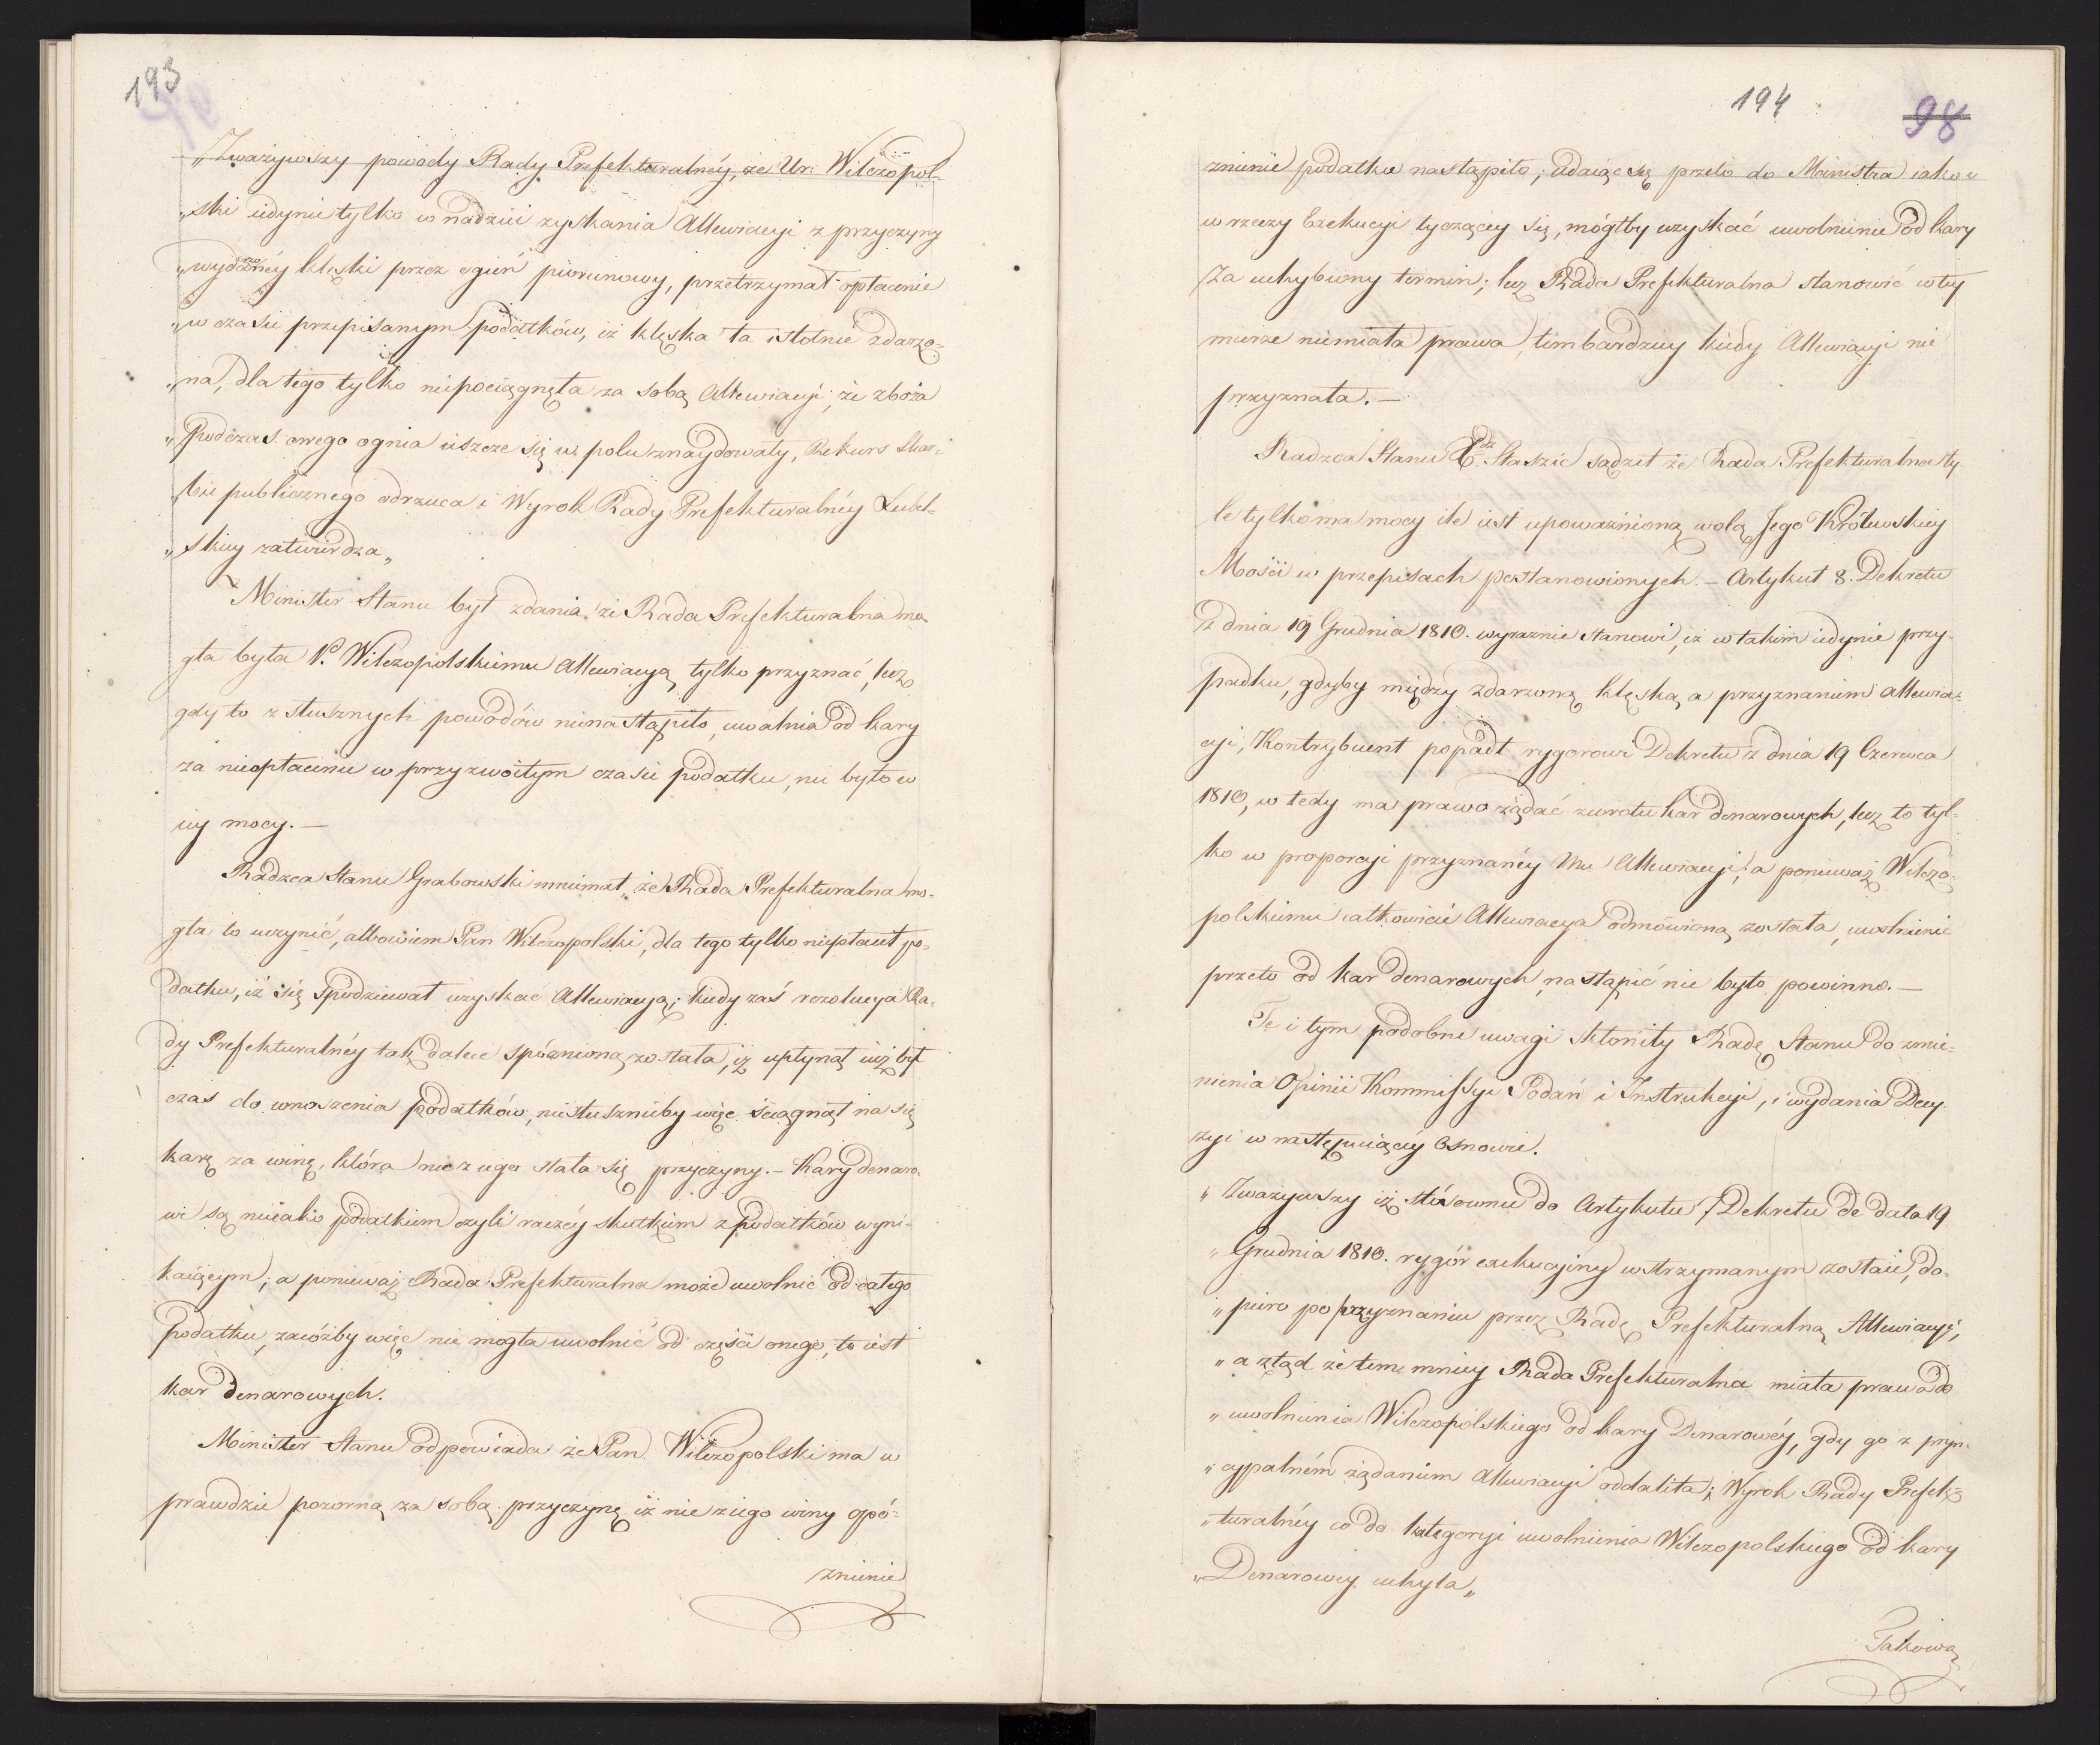 193
„Zważywszy powody Rady Prefekturalnéy, że Ur: Wilczopol-
„ski iedynie tylko w nadziei zyskania Allewiacyi z przyczyny
„wydarzonéy klęski przez ogień piorunowy, przetrzymał opłacenie
„w czasie przepisanym podatków, iż klęska ta istotnie zdarzo-
„na, dla tego tylko niepociągnęła za sobą Allewiacyi, że zboża
„podczas owego ognia ieszcze się w polu znaydowały, Rekurs Skar-
„bu publicznego odrzuca i Wyrok Rady Prefekturalnéy Lubel-
„skiey zatwierdza„
Minister Stanu był zdania, że Rada Prefekturalna mo-
gła była P. Wilczopolskiemu Allewiacyą tylko przyznać, lecz
gdy to z słusznych powodów nienastąpiło, uwalniać od kary
za nieopłacenie w przyzwoitym czasie podatku, nie było w
iey mocy. —
Radzca Stanu Grabowski mniemał, że Rada Prefekturalna mo-
gła to uczynić, albowiem Pan Wilczopolski, dla tego tylko niepłacił po-
datku, iż się spodziewał uzyskać Allewiacyą; kiedy zaś rezolucya Ra-
dy Prefekturalnéy tak dalece spóźnioną została, iż upłynął iuż był
czas do wnoszenia podatków, niesłusznieby więc ściągnął na się
karę za winę, która nie z iego stała się przyczyny. — Kary denaro-
we są nieiako podatkiem czyli raczéy skutkiem z podatków wyni-
kaiącym; a ponieważ Rada Prefekturalna może uwolnić od całego
podatku, zacóżby więc nie mogła uwolnić od części onego, to iest
kar denarowych.
Minister Stanu odpowiada że Pan Wilczopolski ma w
prawdzie pozorną za sobą przyczynę iż nie z iego winy opó-
znienie
194
98
znienie podatku nastąpiło; udaiąc się przeto do Ministra iako
w rzeczy Exekucyi tyczącey się, mógłby uzyskać uwolnienie od kary
za uchybiony termin; lecz Rada Prefekturalna stanowić w tey
mierze niemiała prawa, tembardziey kiedy Allewiacyi nie
przyznała. —
Radzca Stanu Xdz Staszic sądził że Rada Prefekturalna ty-
le tylko ma mocy ile iest upoważnioną wolą Jego Królewskiey
Mości w przepisach postanowionych. — Artykuł 8. Dekretu
z dnia 19 Grudnia 1810. wyraznie stanowi, iż w takim iedynie przy-
padku, gdyby między zdarzoną klęską a przyznaniem allewia-
cyi, Kontrybuent popadł rygorowi Dekretu z dnia 19 Czerwca
1810, w tedy ma prawo żądać zwrotu kar denarowych, lecz to tyl-
ko w proporcyi przyznanéy Mu Allewiacyi; a ponieważ Wilczo-
polskiemu całkowicie Allewiacya odmówioną została, uwolnienie
przeto od kar denarowych nastąpić nie było powinno. —
Te i tym podobne uwagi skłoniły Radę Stanu do zmie-
nienia Opinii Kommissyi Podań i Instrukcyi, i wydania Decy-
zyi w następuiącéy Osnowie.
„Zważywszy iż stósownie do Artykułu Dekretu de data 19
„Grudnia 1810. rygór exekucyiny wstrzymanym zostaie, do-
„piero po przyznaniu przez Radę Prefekturalną Allewiacyi,
„a ztąd że temmniey Rada Prefekturalna miała prawo do
„uwolnienia Wilczopolskiego od kary Denarowéy, gdy go z pryn-
„cypalném żądaniem Allewiacyi oddaliła; Wyrok Rady Prefek-
„turalnéy co do kategoryi uwolnienia Wilczopolskiego od kary
„Denarowey uchyla„
Takową